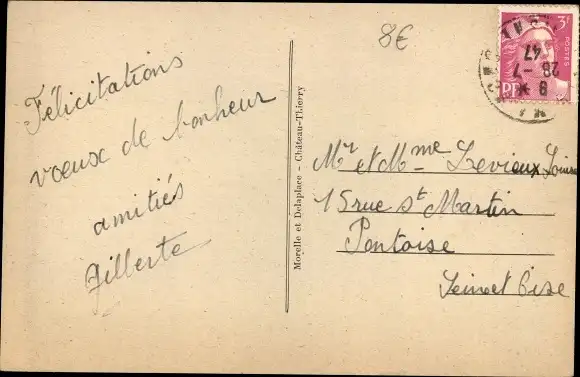 8€
3f
POSTES
RF
28-7
47
Félicitations
voeux de bonheur
amitiés
Gilberte
Morelle et Delaplace - Château-Thierry
Mr et Mme Levieux Louise
15 rue St Martin
Pontoise
Seine et Oise